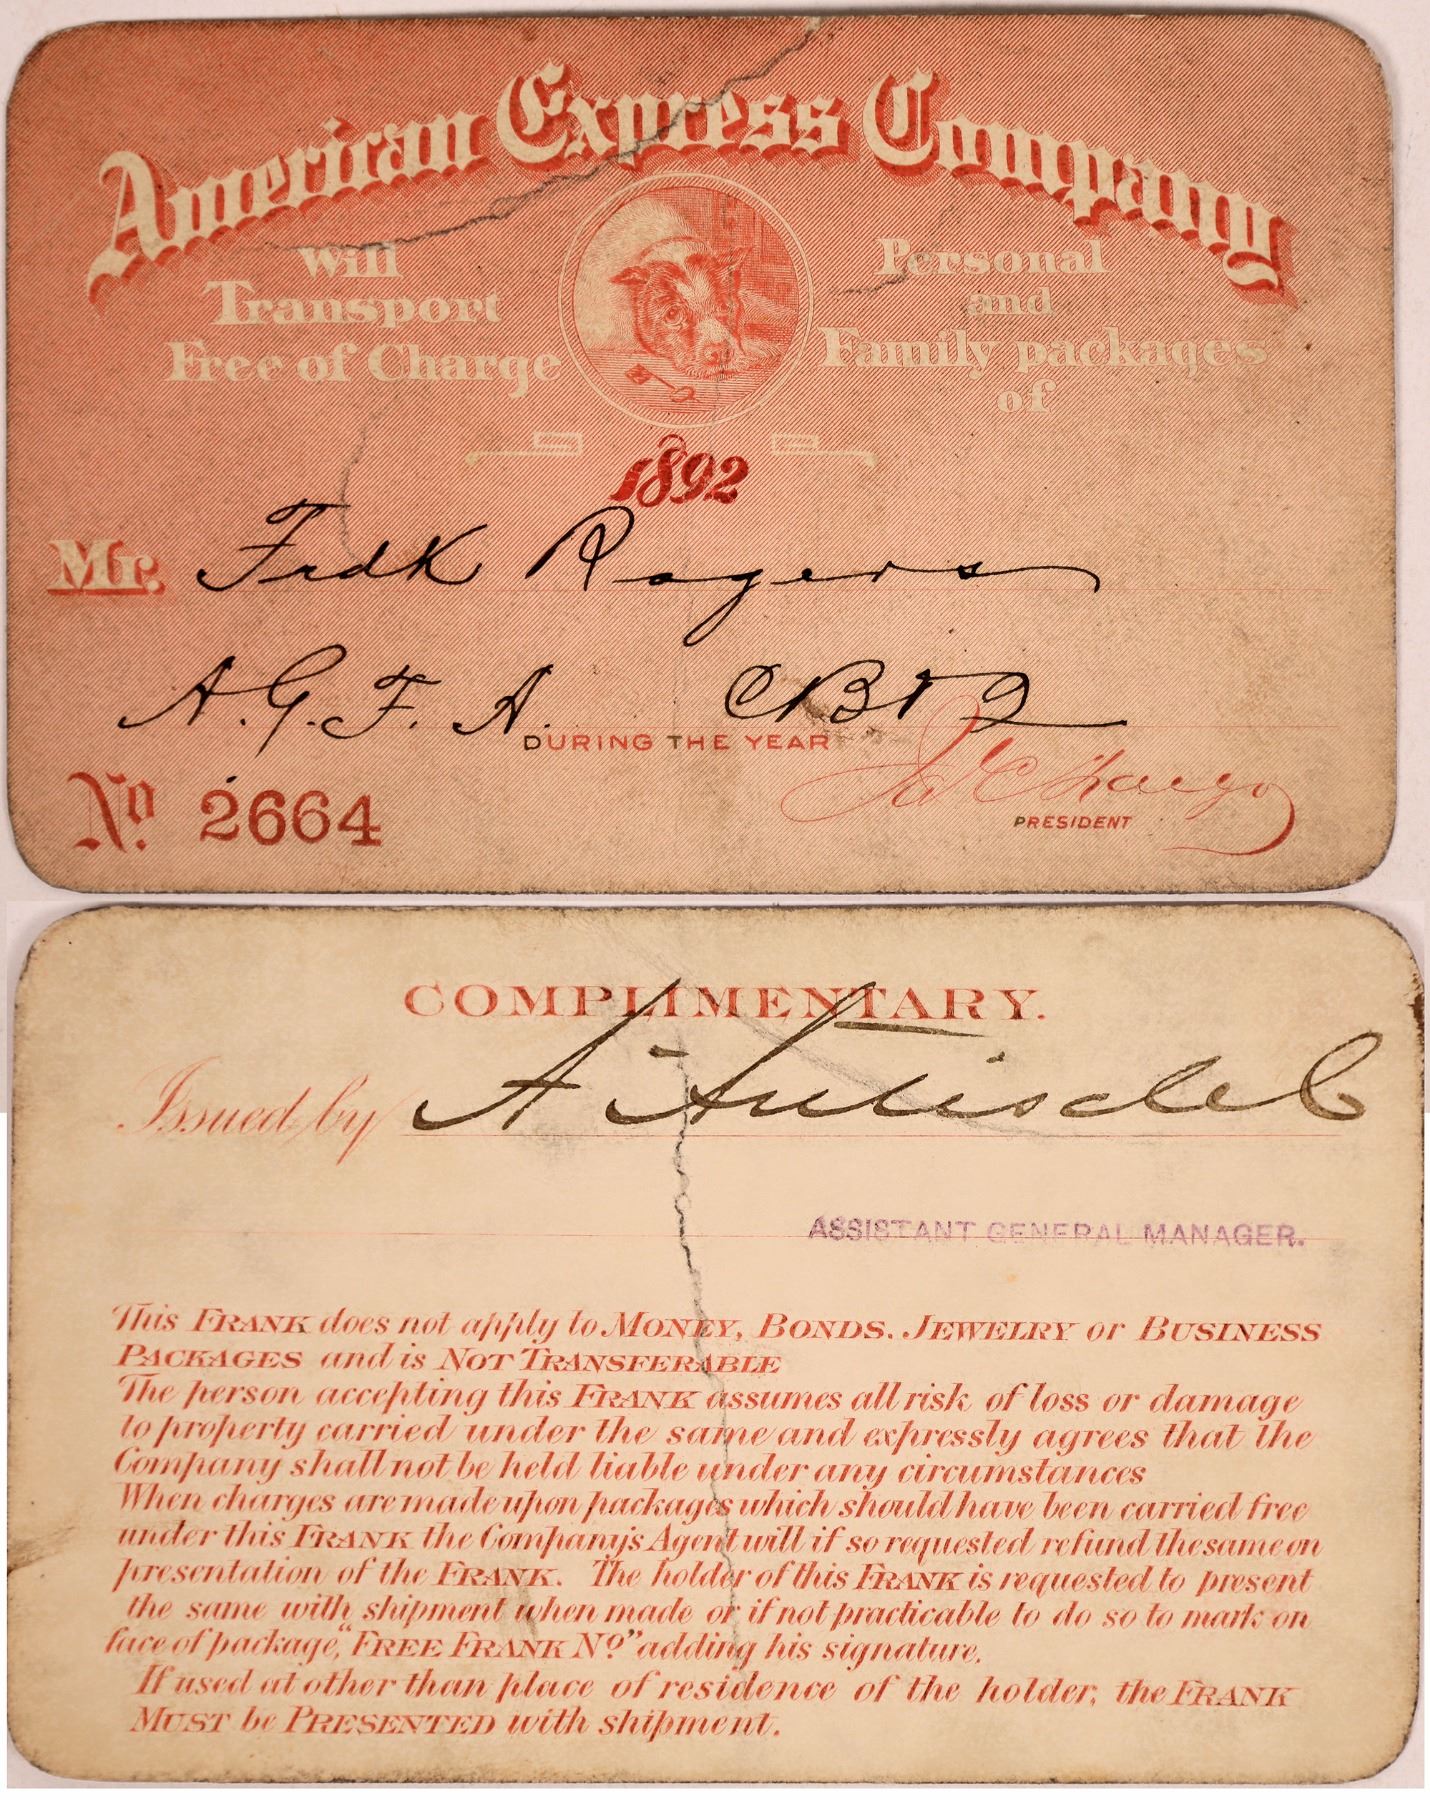 American Express Company
Will
Transport
Free of Charge
Personal
and
Family packages
of
1892
Mr. Fredk Rogers
A.G.F.A.
DURING THE YEAR
No. 2664
PRESIDENT
COMPLIMENTARY.
Issued by A
ASSISTANT GENERAL MANAGER.
This FRANK does not apply to MONEY, BONDS, JEWELRY or BUSINESS
PACKAGES and is NOT TRANSFERABLE
The person accepting this FRANK assumes all risk of loss or damage
to property carried under the same and expressly agrees that the
Company shall not be held liable under any circumstances
When charges are made upon packages which should have been carried free
under this FRANK the Company's Agent will if so requested refund the same on
presentation of the FRANK. The holder of this FRANK is requested to present
the same with shipment when made or if not practicable to do so to mark on
face of package, "FREE FRANK No." adding his signature.
If used at other than place of residence of the holder, the FRANK
MUST be PRESENTED with shipment.